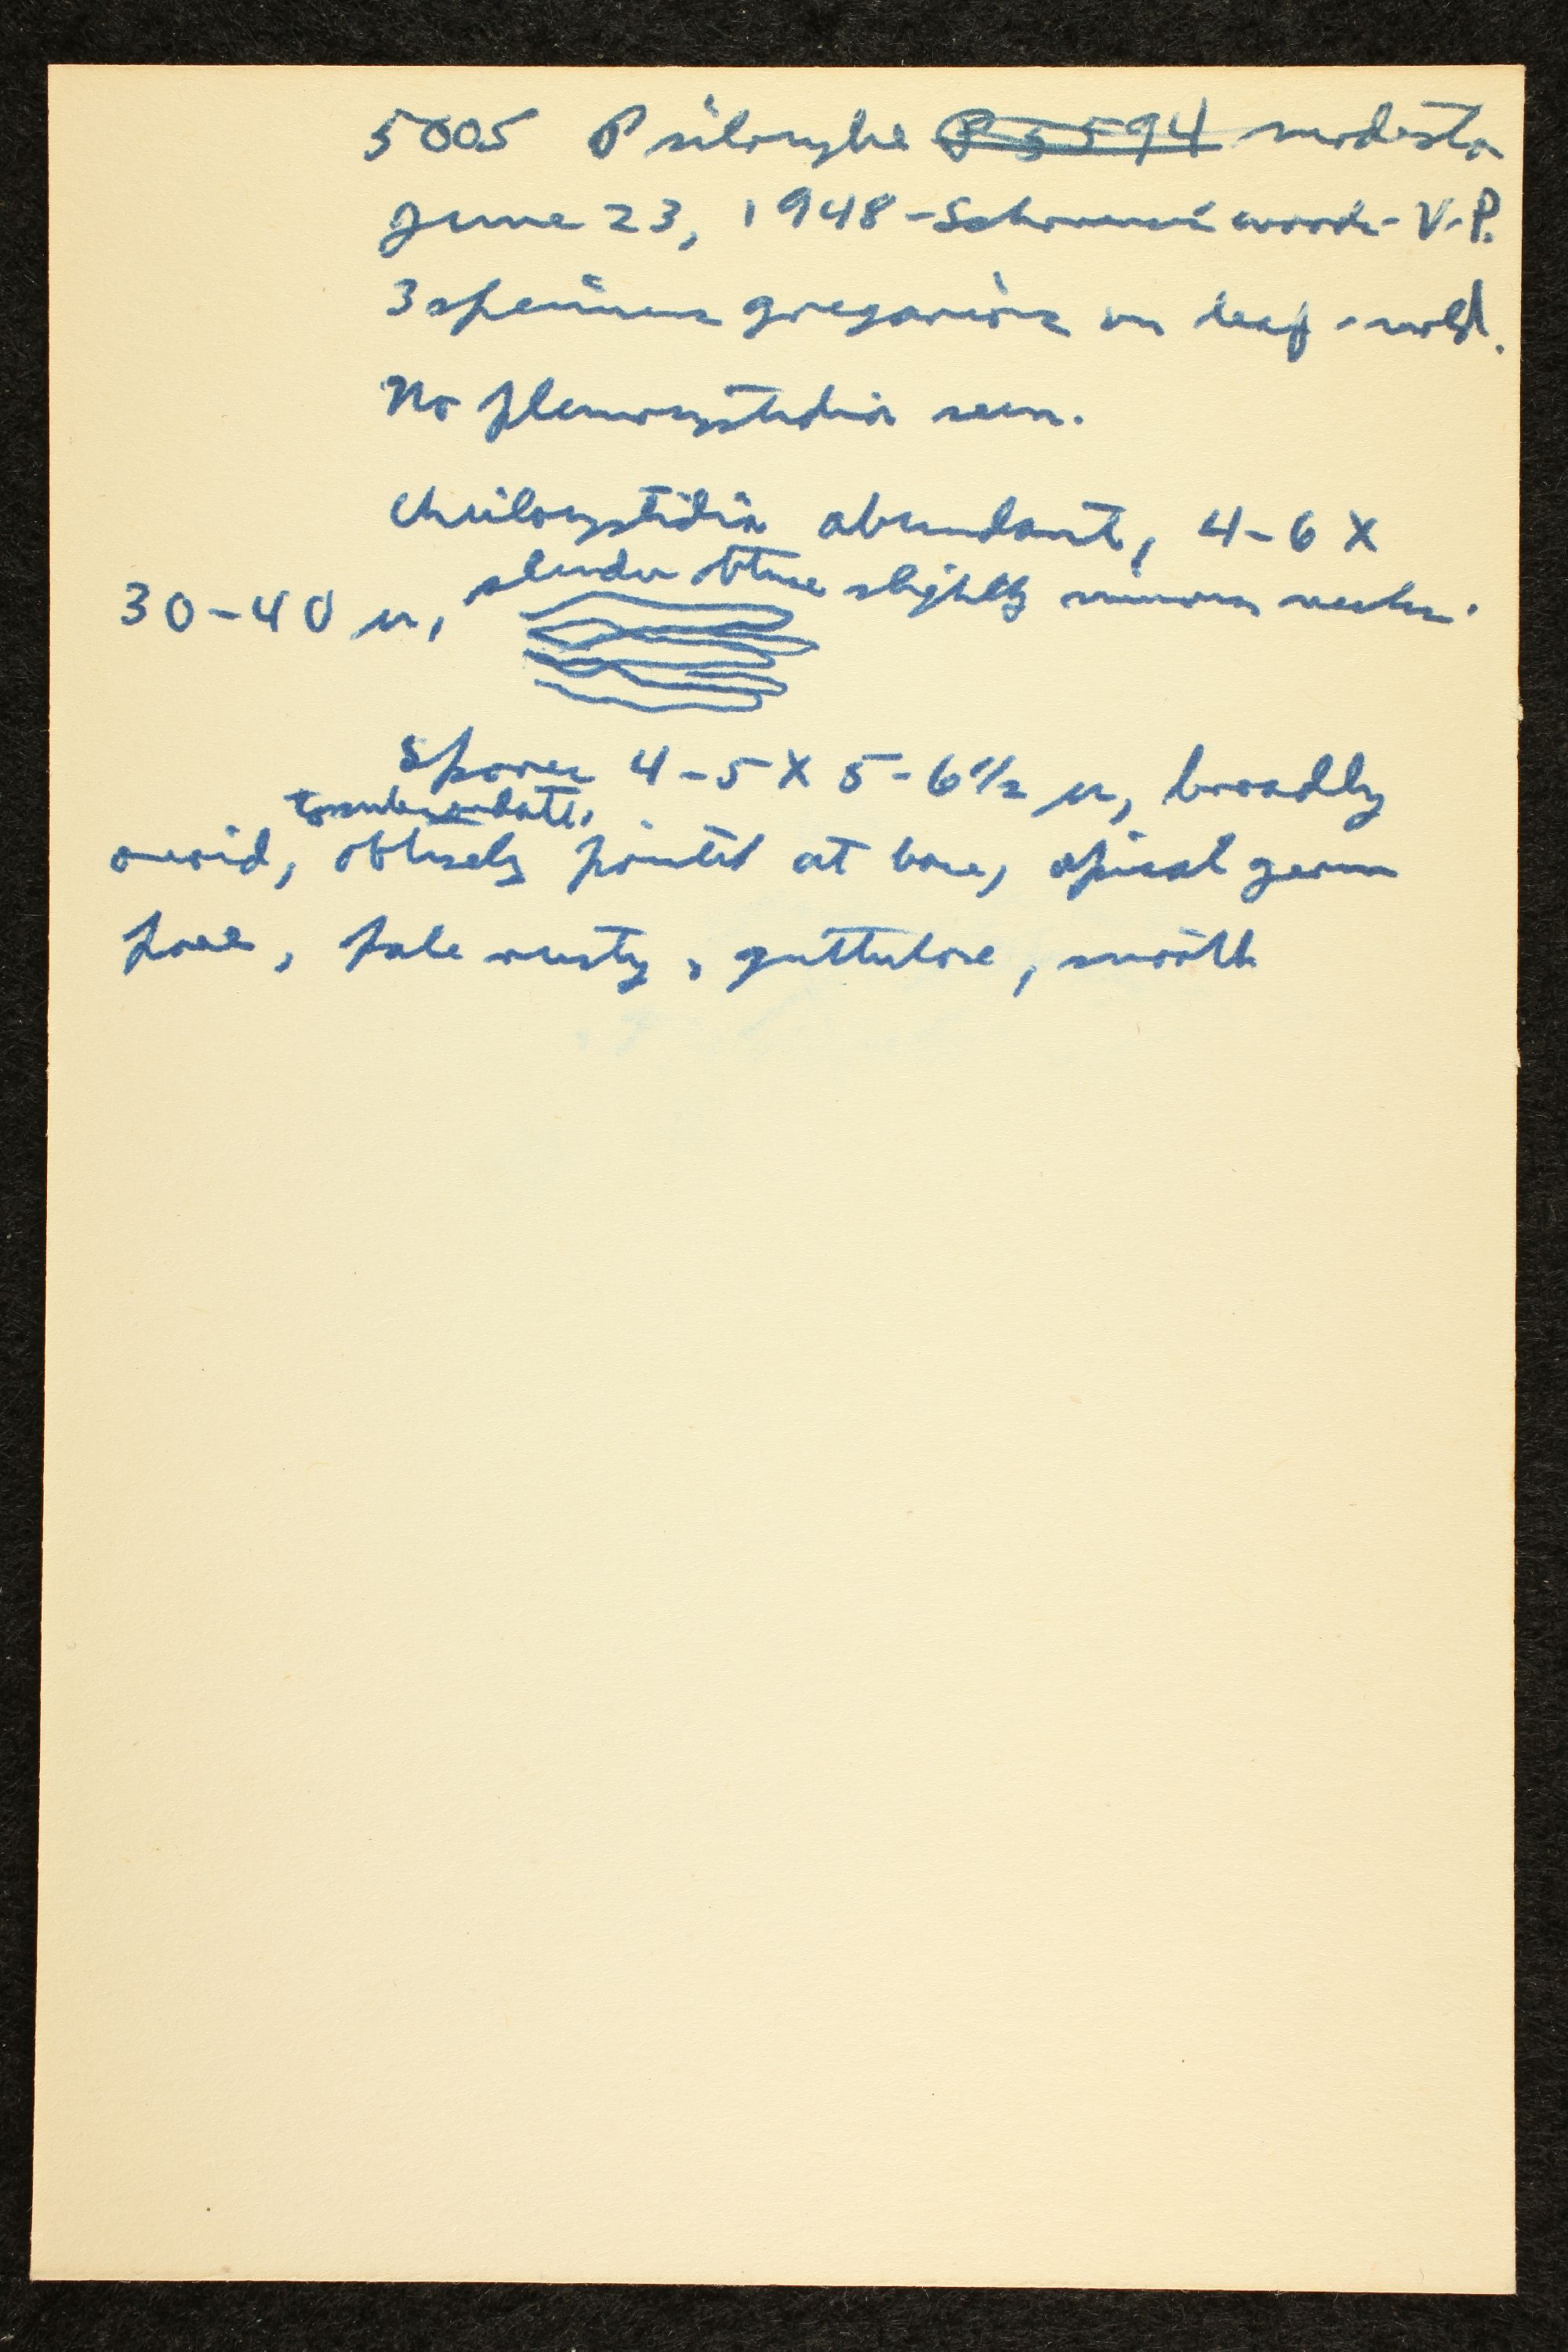 5005 Psilocybe P 5594 modesta
June 23, 1948 - woods - V. P.
3 specimens gregarious on leaf-mold.
No pleurocystidia seen.
Cheilocystidia abundant, 4-6 X
30-40 µ, slender obtuse slightly sinuous necks.
Spores 4-5 X 5-6 1/2 µ, broadly
to subcordate,
ovoid, obtusely pointed at base, apical germ
pore, pale rusty, guttulose, smooth